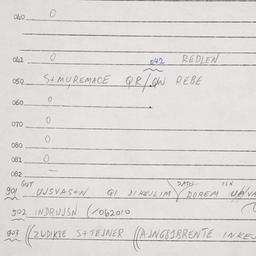 040 0
041 0 042 REDLEN
050 S+MUREMACE QR/QW REBE
060 0
070 0
080 0
081 0
082 —
901 UJSVAS+N QI NIKEULIM DOREM
902 INDRUJSN (/062010
903 ((ZUDIKRE S+TEJNER ((AJNGBSBRENTE INKEJ